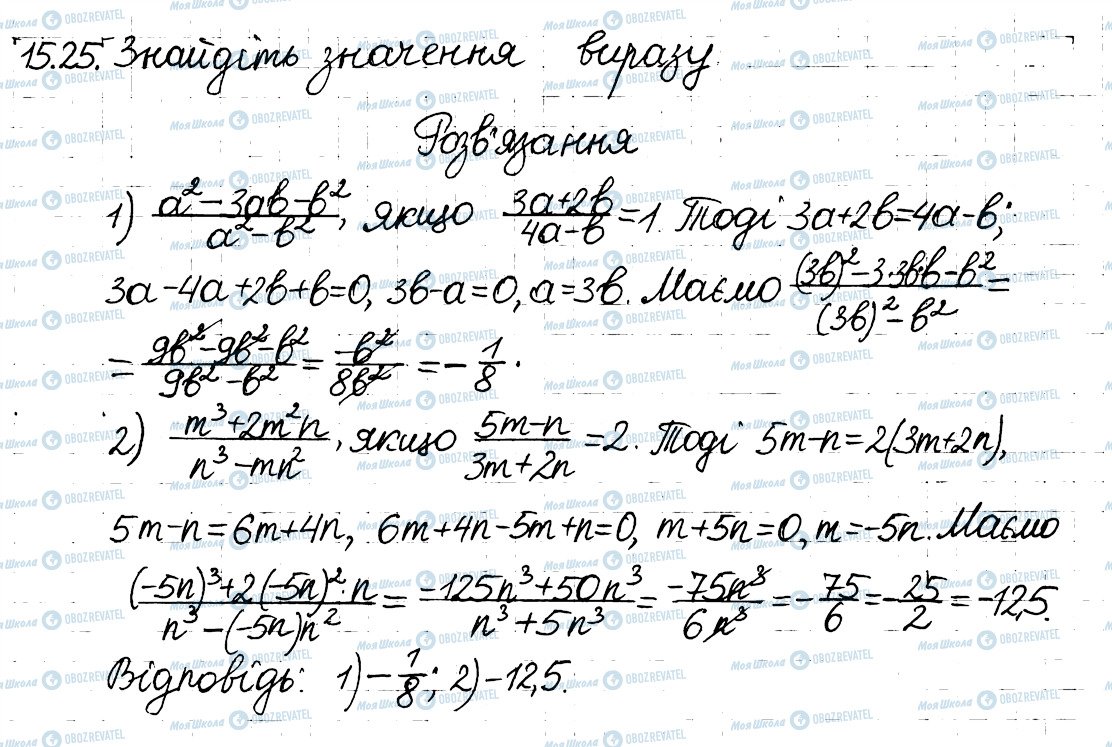 15.25. Знайдіть значення виразу
Розв'язання
1) (a² - 3ab - b²)/(a² - b²), якщо (3a+2b)/(4a-b) = 1. Тоді 3a+2b=4a-b;
3a-4a+2b+b=0, 3b-a=0, a=3b. Маємо ((3b)²-3·3b·b-b²)/((3b)²-b²) =
= (9b²-9b²-b²)/(9b²-b²) = (-b²)/(8b²) = -1/8.
2) (m³+2m²n)/(n³-mn²), якщо (5m-n)/(3m+2n) = 2. Тоді 5m-n=2(3m+2n),
5m-n=6m+4n, 6m+4n-5m+n=0, m+5n=0, m=-5n. Маємо
((-5n)³+2(-5n)²·n)/(n³-(-5n)n²) = (-125n³+50n³)/(n³+5n³) = (-75n³)/(6n³) = -75/6 = -25/2 = -12,5.
Відповідь: 1) -1/8; 2) -12,5.
Моя Школа OBOZREVATEL